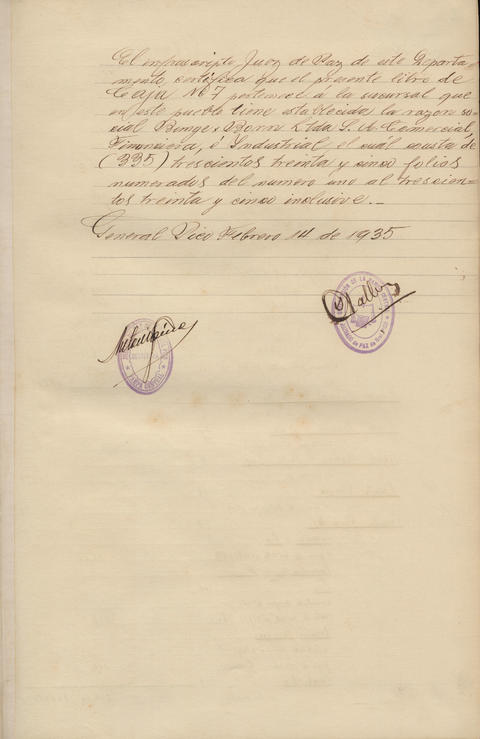 El infrascripto Juez de Paz de este Departa-
mento, certifica que el presente libro de
Caja No 7 pertenece á la sucursal que
en este pueblo tiene establecida la razon so-
cial Bunge y Born Ltda S. A. Comercial,
Financiera, é Industrial, el cuál consta de
(335) trescientos treinta y cinco folios
numerados del numero uno al trescien-
tos treinta y cinco inclusive. —
General Pico Febrero 14 de 1935
JUZGADO DE PAZ